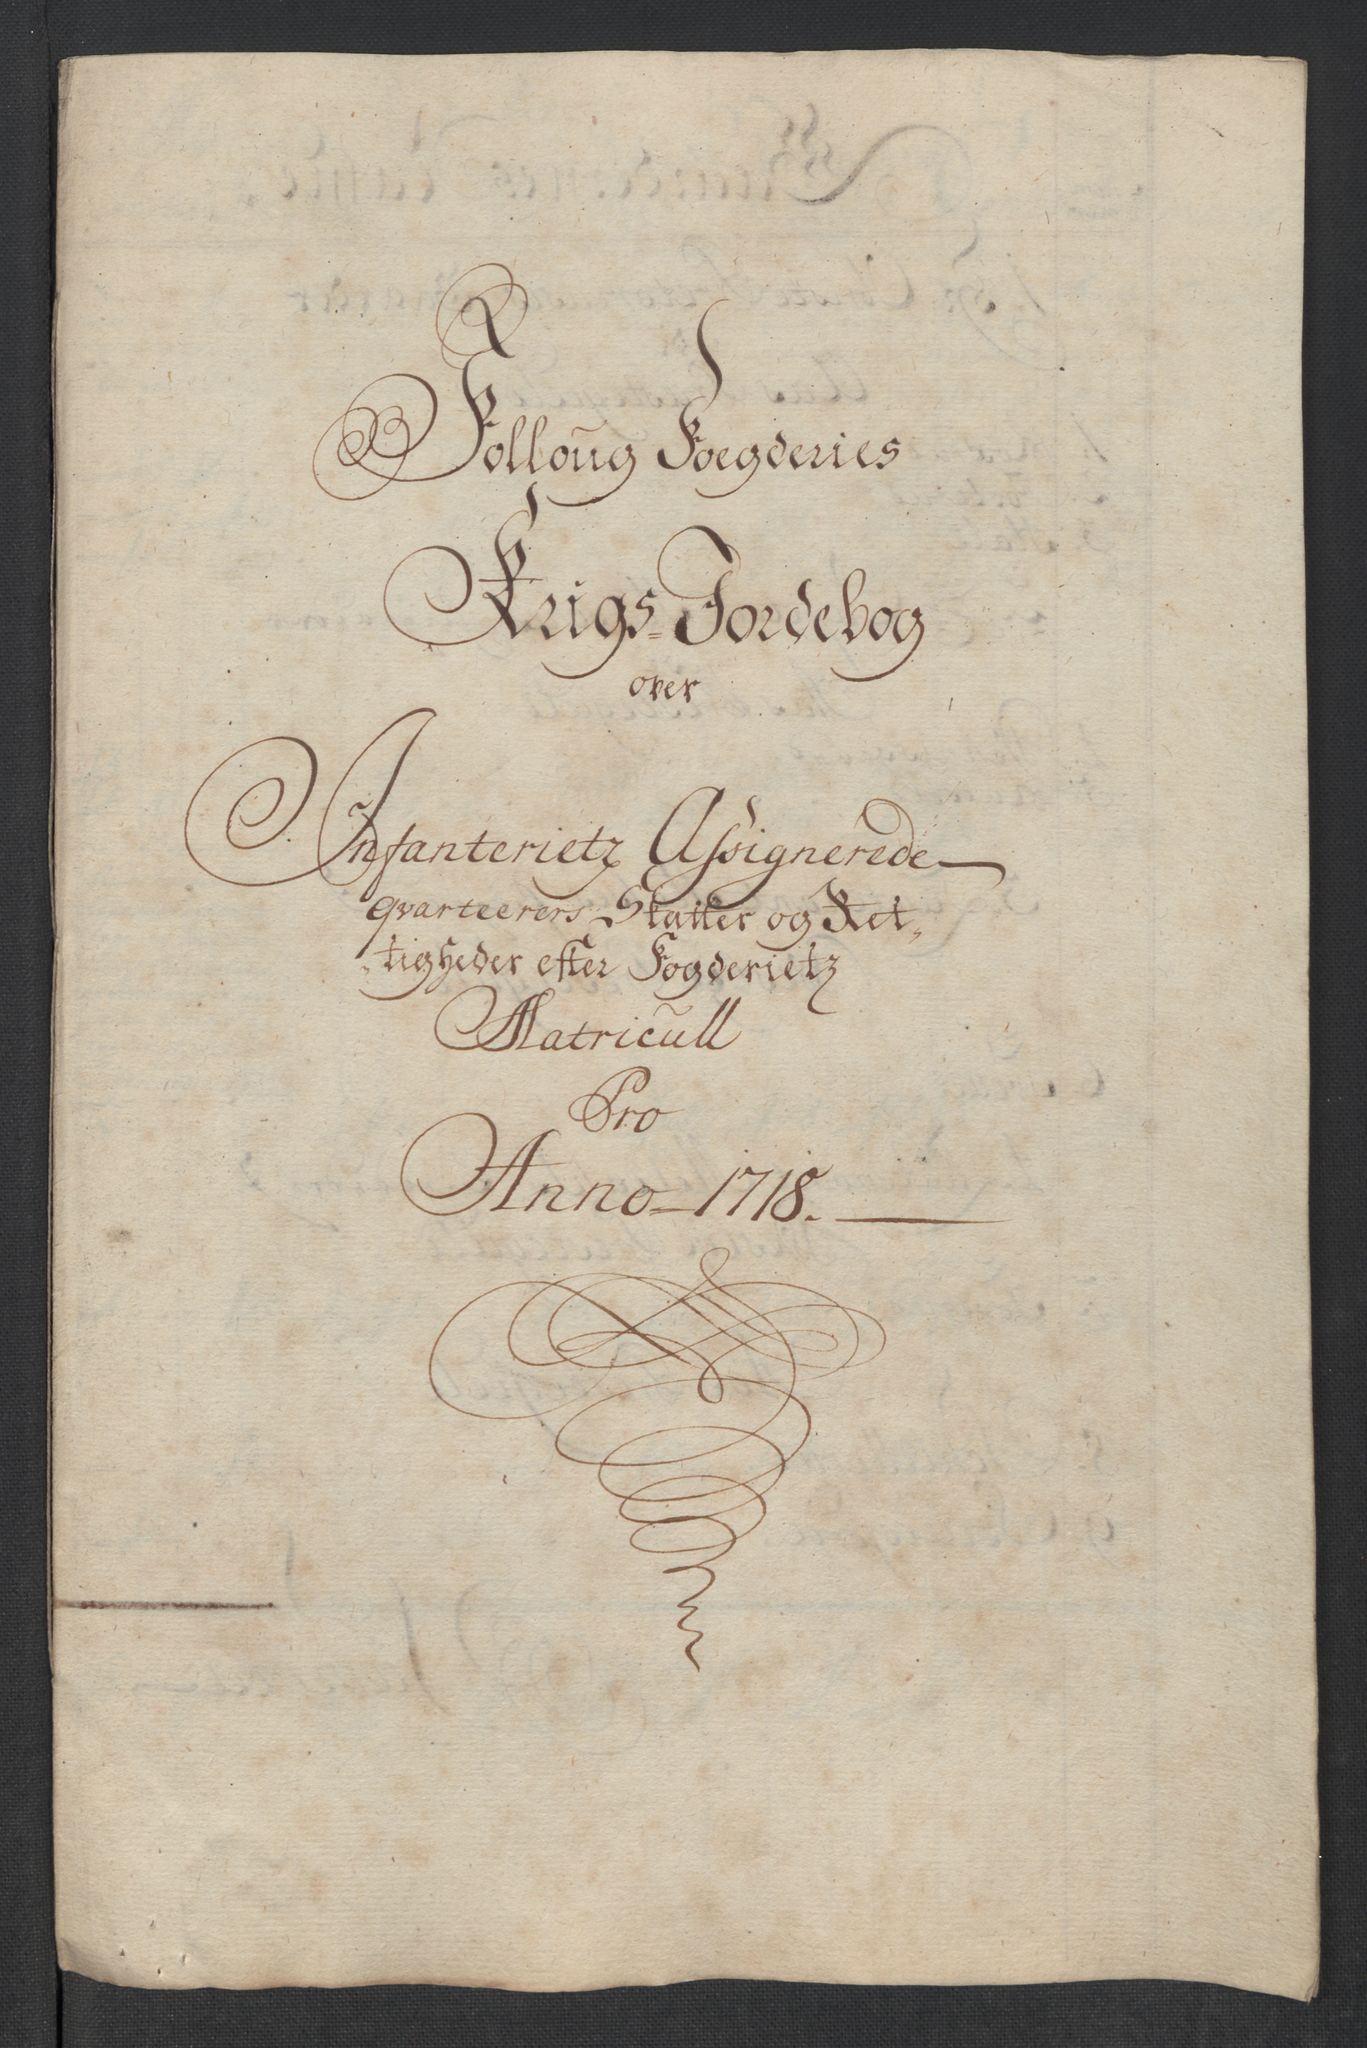 Folloug Foegderies
Krigs=Jordebog
over
Infanterietz Assignerede
qvarteerers Skatter og Ret-
-tigheder efter Fogderietz
Matricull
Pro
Anno=1718.